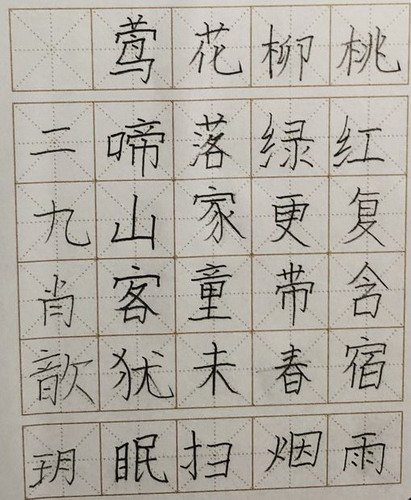 桃红复含宿雨
柳绿更带春烟
花落家童未扫
莺啼山客犹眠
二九肖歆玥